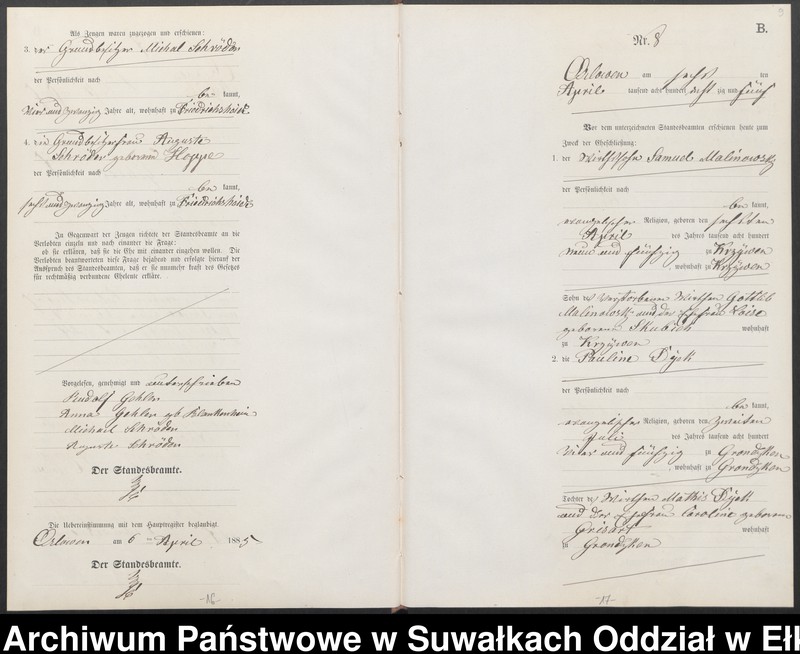 Als Zeugen waren zugezogen und erschienen:
3. der Grundbesitzer Michal Schröder
der Persönlichkeit nach
be kannt,
vier und zwanzig Jahre alt, wohnhaft zu Friedrichsheide
4. die Grundbesitzerfrau Auguste
Schröder geborene Hoppe
der Persönlichkeit nach
be kannt,
sechs und zwanzig Jahre alt, wohnhaft zu Friedrichsheide
In Gegenwart der Zeugen richtete der Standesbeamte an die
Verlobten einzeln und nach einander die Frage:
ob sie erklären, daß sie die Ehe mit einander eingehen wollen. Die
Verlobten beantworteten diese Frage bejahend und erfolgte hierauf der
Ausspruch des Standesbeamten, daß er sie nunmehr kraft des Gesetzes
für rechtmäßig verbundene Eheleute erkläre.
Vorgelesen, genehmigt und unterschrieben
Rudolf
Anna gb Blankenstein
Michael Schröder
Auguste Schröder
Der Standesbeamte.
Die Uebereinstimmung mit dem Hauptregister beglaubigt
Orlowen am 6 ten April 1885
Der Standesbeamte.
-16-
9
B.
Nr. 8
Orlowen am sechs ten
April tausend acht hundert acht zig und fünf
Vor dem unterzeichneten Standesbeamten erschienen heute zum
Zweck der Eheschließung:
1. der Wirthssohn Samuel Malinowsky
der Persönlichkeit nach
be kannt,
evangelischer Religion, geboren den sechsten
April des Jahres tausend acht hundert
neun und fünfzig zu Krzywen
, wohnhaft zu Krzywen
Sohn des verstorbenen Wirthen Gottlieb
Malinowsky und der Ehefrau Loise
geborene Skubich wohnhaft
zu Krzywen
2. die Pauline Dyck
der Persönlichkeit nach
be kannt,
evangelischer Religion, geboren den zweiten
Juli des Jahres tausend acht hundert
vier und fünfzig zu Grondzken
, wohnhaft zu Grondzken
Tochter des Wirthen Mathis Dyck
und der Ehefrau Caroline geborene
wohnhaft
zu Grondzken
-17-
Archiwum Państwowe w Suwałkach Oddział w Ełk